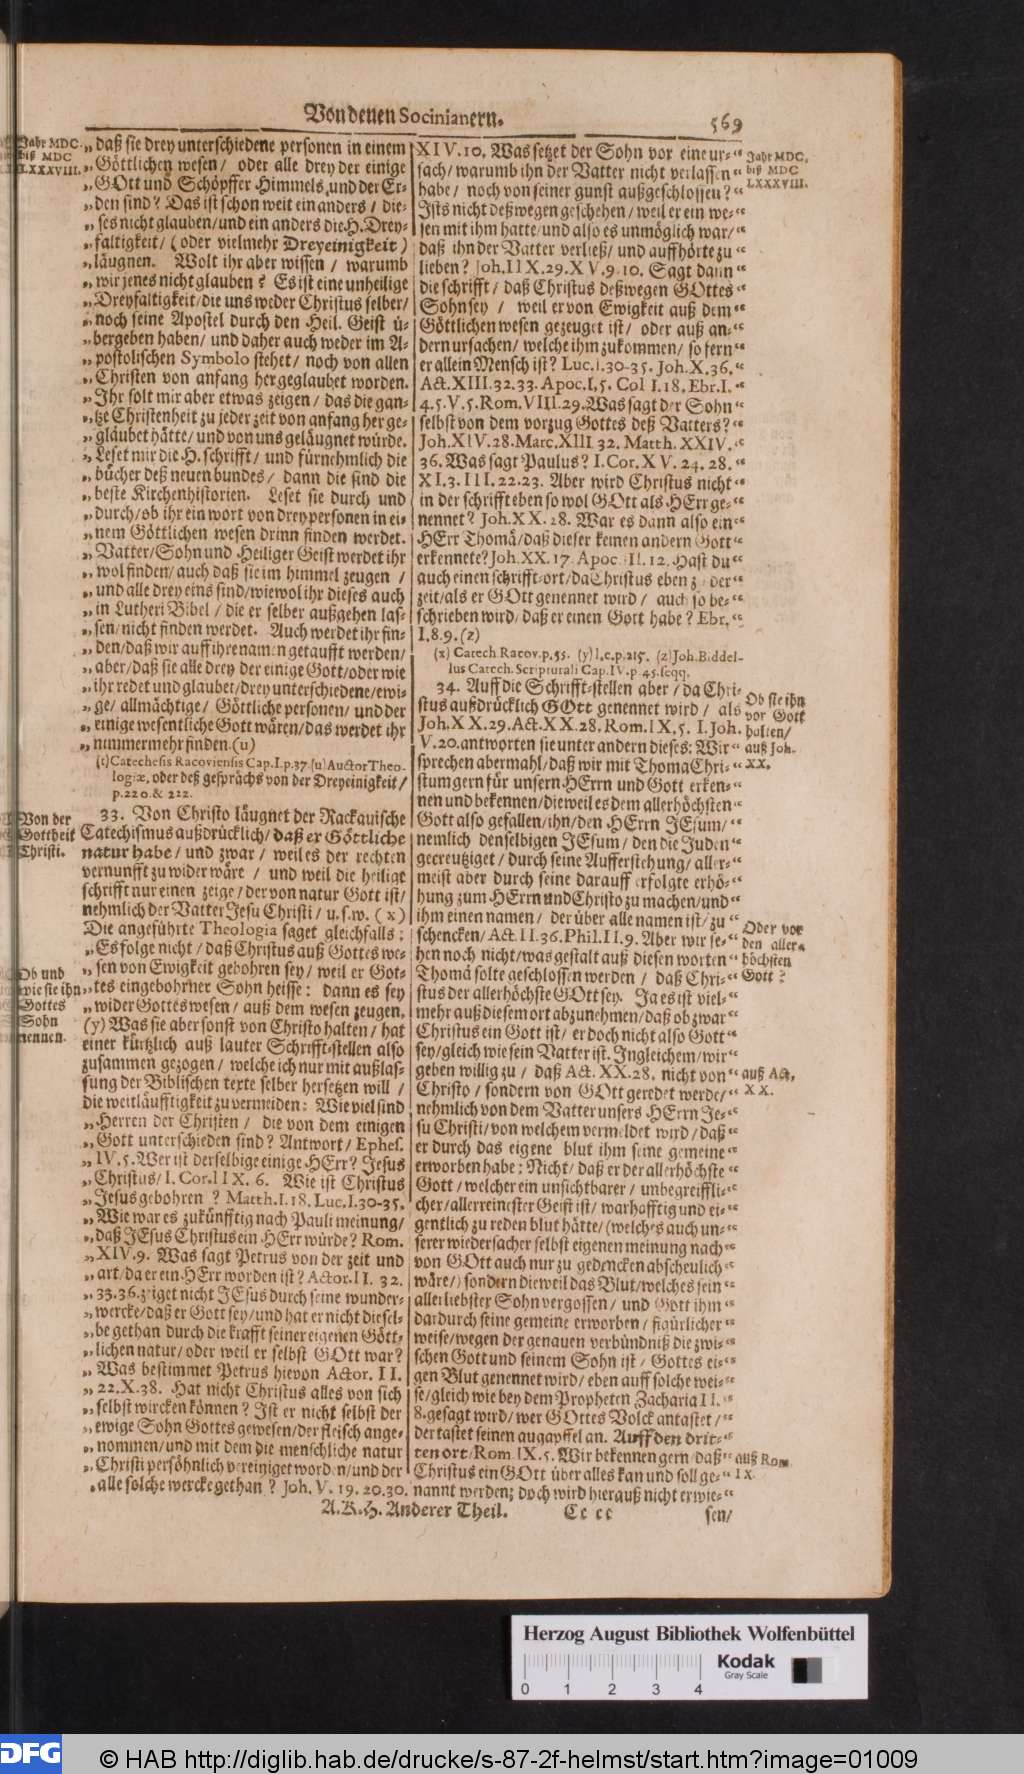 Von denen Socinianern.
569
Jahr MDC.
biß MDC
LXXXVIII.
„ daß sie drey unterschiedene personen in einem
„ Göttlichen wesen / oder alle drey der einige
„ GOtt und Schöpffer Himmels und der Er-
„ den sind? Das ist schon weit ein anders / die-
„ ses nicht glauben / und ein anders die H. Drey-
„ faltigkeit / (oder vielmehr Dreyeinigkeit)
„ läugnen. Wolt ihr aber wissen / warumb
„ wir jenes nicht glauben? Es ist eine unheilige
„ Dreyfaltigkeit / die uns weder Christus selber /
„ noch seine Apostel durch den Heil. Geist ü-
„ bergeben haben / und daher auch weder im A-
„ postolischen Symbolo stehet / noch von allen
„ Christen von anfang her geglaubet worden.
„ Ihr solt mir aber etwas zeigen / das die gan-
„ tze Christenheit zu jeder zeit von anfang her ge-
„ gläubet hätte / und von uns geläugnet würde.
„ Leset mir die H. schrifft / und fürnehmlich die
„ bücher deß neuen bundes / dann die sind die
„ beste Kirchenhistorien. Leset sie durch und
„ durch / ob ihr ein wort von drey personen in ei-
„ nem Göttlichen wesen drinn finden werdet.
„ Vatter / Sohn und Heiliger Geist werdet ihr
„ wol finden / auch daß sie im himmel zeugen /
„ und alle drey eins sind / wiewol ihr dieses auch
„ in Lutheri Bibel / die er selber außgehen las-
„ sen / nicht finden werdet. Auch werdet ihr fin-
„ den / daß wir auff ihre namen getaufft werden /
„ aber / daß sie alle drey der einige Gott / oder wie
„ ihr redet und glaubet / drey unterschiedene / ewi-
„ ge / allmächtige / Göttliche personen / und der
„ einige wesentliche Gott wären / das werdet ihr
„ nimmermehr finden. (u)
(t) Catechesis Racoviensis Cap. I. p. 37. (u) Auctor Theo-
logiæ, oder deß gesprächs von der Dreyeinigkeit /
p. 220. & 212.
Von der
Gottheit
Christi.
33. Von Christo läugnet der Rackauische
Catechismus außdrücklich / daß er Göttliche
natur habe / und zwar / weil es der rechten
vernunfft zu wider wäre / und weil die heilige
schrifft nur einen zeige / der von natur Gott ist /
nehmlich der Vatter Jesu Christi / u. s. w. (x)
Die angeführte Theologia saget gleichfalls:
„ Es folge nicht / daß Christus auß Gottes we-
„ sen von Ewigkeit gebohren sey / weil er Got-
„ tes eingebohrner Sohn heisse: dann es sey
„ wider Gottes wesen / auß dem wesen zeugen.
Ob und
wie sie ihn
Gottes
Sohn
nennen.
(y) Was sie aber sonst von Christo halten / hat
einer kürtzlich auß lauter Schrifft-stellen also
zusammen gezogen / welche ich nur mit außlas-
sung der Biblischen texte selber hersetzen will /
die weitläufftigkeit zu vermeiden: Wie viel sind
„ Herren der Christen / die von dem einigen
„ Gott unterschieden sind? Antwort / Ephes.
„ IV. 5. Wer ist derselbige einige HErr? Jesus
„ Christus / I. Cor. IIX. 6. Wie ist Christus
„ Jesus gebohren? Matth. I. 18. Luc. I. 30-35.
„ Wie war es zukünfftig nach Pauli meinung /
„ daß JEsus Christus ein HErr würde? Rom.
„ XIV. 9. Was sagt Petrus von der zeit und
„ art / da er ein HErr worden ist? Actor. II. 32.
„ 33. 36. zeiget nicht JEsus durch seine wunder-
„ wercke / daß er Gott sey / und hat er nicht diesel-
„ be gethan durch die krafft seiner eigenen Gött-
„ lichen natur / oder weil er selbst GOtt war?
„ Was bestimmet Petrus hievon Actor. II.
„ 22. X. 38. Hat nicht Christus alles von sich
„ selbst wircken können? Ist er nicht selbst der
„ ewige Sohn Gottes gewesen / der fleisch ange-
„ nommen / und mit dem die menschliche natur
„ Christi persöhnlich vereiniget worden / und der
„ alle solche wercke gethan? Joh. V. 19. 20. 30.
XIV. 10. Was setzet der Sohn vor eine ur- “
sach / warumb ihn der Vatter nicht verlassen “
habe / noch von seiner gunst außgeschlossen? “
Ists nicht deßwegen geschehen / weil er ein we- “
sen mit ihm hatte / und also es unmöglich war / “
daß ihn der Vatter verließ / und auffhörte zu “
lieben? Joh. IIX. 29. XV. 9. 10. Sagt dann “
die schrifft / daß Christus deßwegen GOttes “
Sohn sey / weil er von Ewigkeit auß dem “
Göttlichen wesen gezeuget ist / oder auß an- “
dern ursachen / welche ihm zukommen / so fern “
er allein Mensch ist? Luc. I. 30-35. Joh. X. 36. “
Act. XIII. 32. 33. Apoc. I, 5. Col I. 18. Ebr. I. “
4. 5. V. 5. Rom. VIII. 29. Was sagt der Sohn “
selbst von dem vorzug Gottes deß Vatters? “
Joh. XIV. 28. Marc. XIII 32. Matth. XXIV. “
36. Was sagt Paulus? I. Cor. XV. 24. 28. “
XI. 3. III. 22. 23. Aber wird Christus nicht “
in der schrifft eben so wol GOtt als HErr ge- “
nennet? Joh. XX. 28. War es dann also ein “
HErr Thomä / daß dieser keinen andern Gott “
erkennete? Joh. XX. 17. Apoc. II. 12. Hast du “
auch einen schrifft-ort / da Christus eben zu der “
zeit / als er GOtt genennet wird / auch so be- “
schrieben wird / daß er einen Gott habe? Ebr. “
I. 8. 9. (z)
(x) Catech. Racov. p. 55. (y) l. c. p. 215. (z) Joh. Biddel-
lus Catech. Scripturali Cap. IV. p. 45. seqq.
Jahr MDC.
biß MDC
LXXXVIII.
34. Auff die Schrifft-stellen aber / da Chri-
stus außdrücklich GOtt genennet wird / als
Joh. XX. 29. Act. XX. 28. Rom. IX. 5. I. Joh.
V. 20. antworten sie unter andern dieses: Wir “
sprechen abermahl / daß wir mit Thoma Chri- “
stum gern für unsern HErrn und Gott erken- “
nen und bekennen / dieweil es dem allerhöchsten “
Gott also gefallen / ihn / den HErrn JEsum / “
nemlich denselbigen JEsum / den die Juden “
gecreutziget / durch seine Aufferstehung / aller- “
meist aber durch seine darauff erfolgte erhö- “
hung zum HErrn und Christo zu machen / und “
ihm einen namen / der über alle namen ist / zu “
schencken / Act. II. 36. Phil. II. 9. Aber wir se- “
hen noch nicht / was gestalt auß diesen worten “
Thomä solte geschlossen werden / daß Chri- “
stus der allerhöchste GOtt sey. Ja es ist viel- “
mehr auß diesem ort abzunehmen / daß ob zwar “
Christus ein Gott ist / er doch nicht also Gott “
sey / gleich wie sein Vatter ist. Ingleichem / wir “
geben willig zu / daß Act. XX. 28. nicht von “
Christo / sondern von GOtt geredet werde / “
nehmlich von dem Vatter unsers HErrn Je- “
su Christi / von welchem vermeldet wird / daß “
er durch das eigene blut ihm seine gemeine “
erworben habe: Nicht / daß er der allerhöchste “
Gott / welcher ein unsichtbarer / unbegreiffli- “
cher / allerreinester Geist ist / warhafftig und ei- “
gentlich zu reden blut hätte / (welches auch un- “
serer wiedersacher selbst eigenen meinung nach “
von GOtt auch nur zu gedencken abscheulich “
wäre /) sondern dieweil das Blut / welches sein “
allerliebster Sohn vergossen / und Gott ihm “
dardurch seine gemeine erworben / figürlicher “
weise / wegen der genauen verbündniß die zwi- “
schen Gott und seinem Sohn ist / Gottes ei- “
gen Blut genennet wird / eben auff solche wei- “
se / gleich wie bey dem Propheten Zacharia II. “
8. gesagt wird / wer GOttes Volck antastet / “
der tastet seinen augapffel an. Auff den drit- “
ten ort / Rom. IX. 5. Wir bekennen gern / daß “
Christus ein GOtt über alles kan und soll ge- “
nannt werden; doch wird hierauß nicht erwie- “
Ob sie ihn
vor Gott
halten /
auß Joh.
XX.
Oder vor
den aller-
höchsten
Gott?
auß Act.
XX.
auß Rom.
IX.
A. K. H. Anderer Theil.
Cc cc
sen /
Herzog August Bibliothek Wolfenbüttel
Kodak
Gray Scale
0 1 2 3 4
DFG
© HAB http://diglib.hab.de/drucke/s-87-2f-helmst/start.htm?image=01009